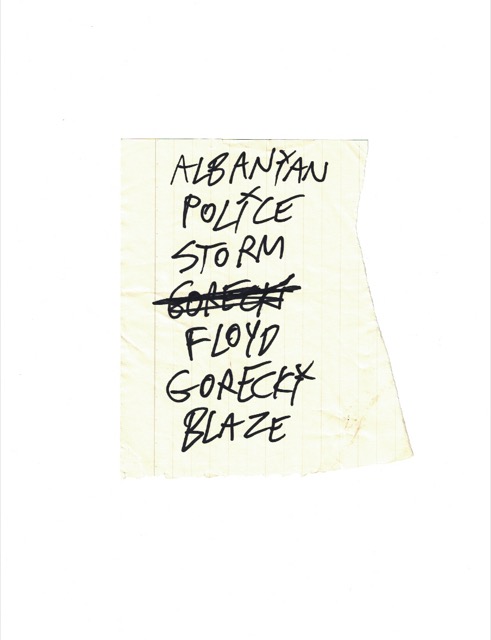 ALBANIAN
POLICE
STORM
GORECKI
FLOYD
GORECKI
BLAZE